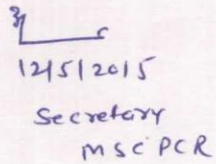 12/5/2015
Secretary
MSCPCR